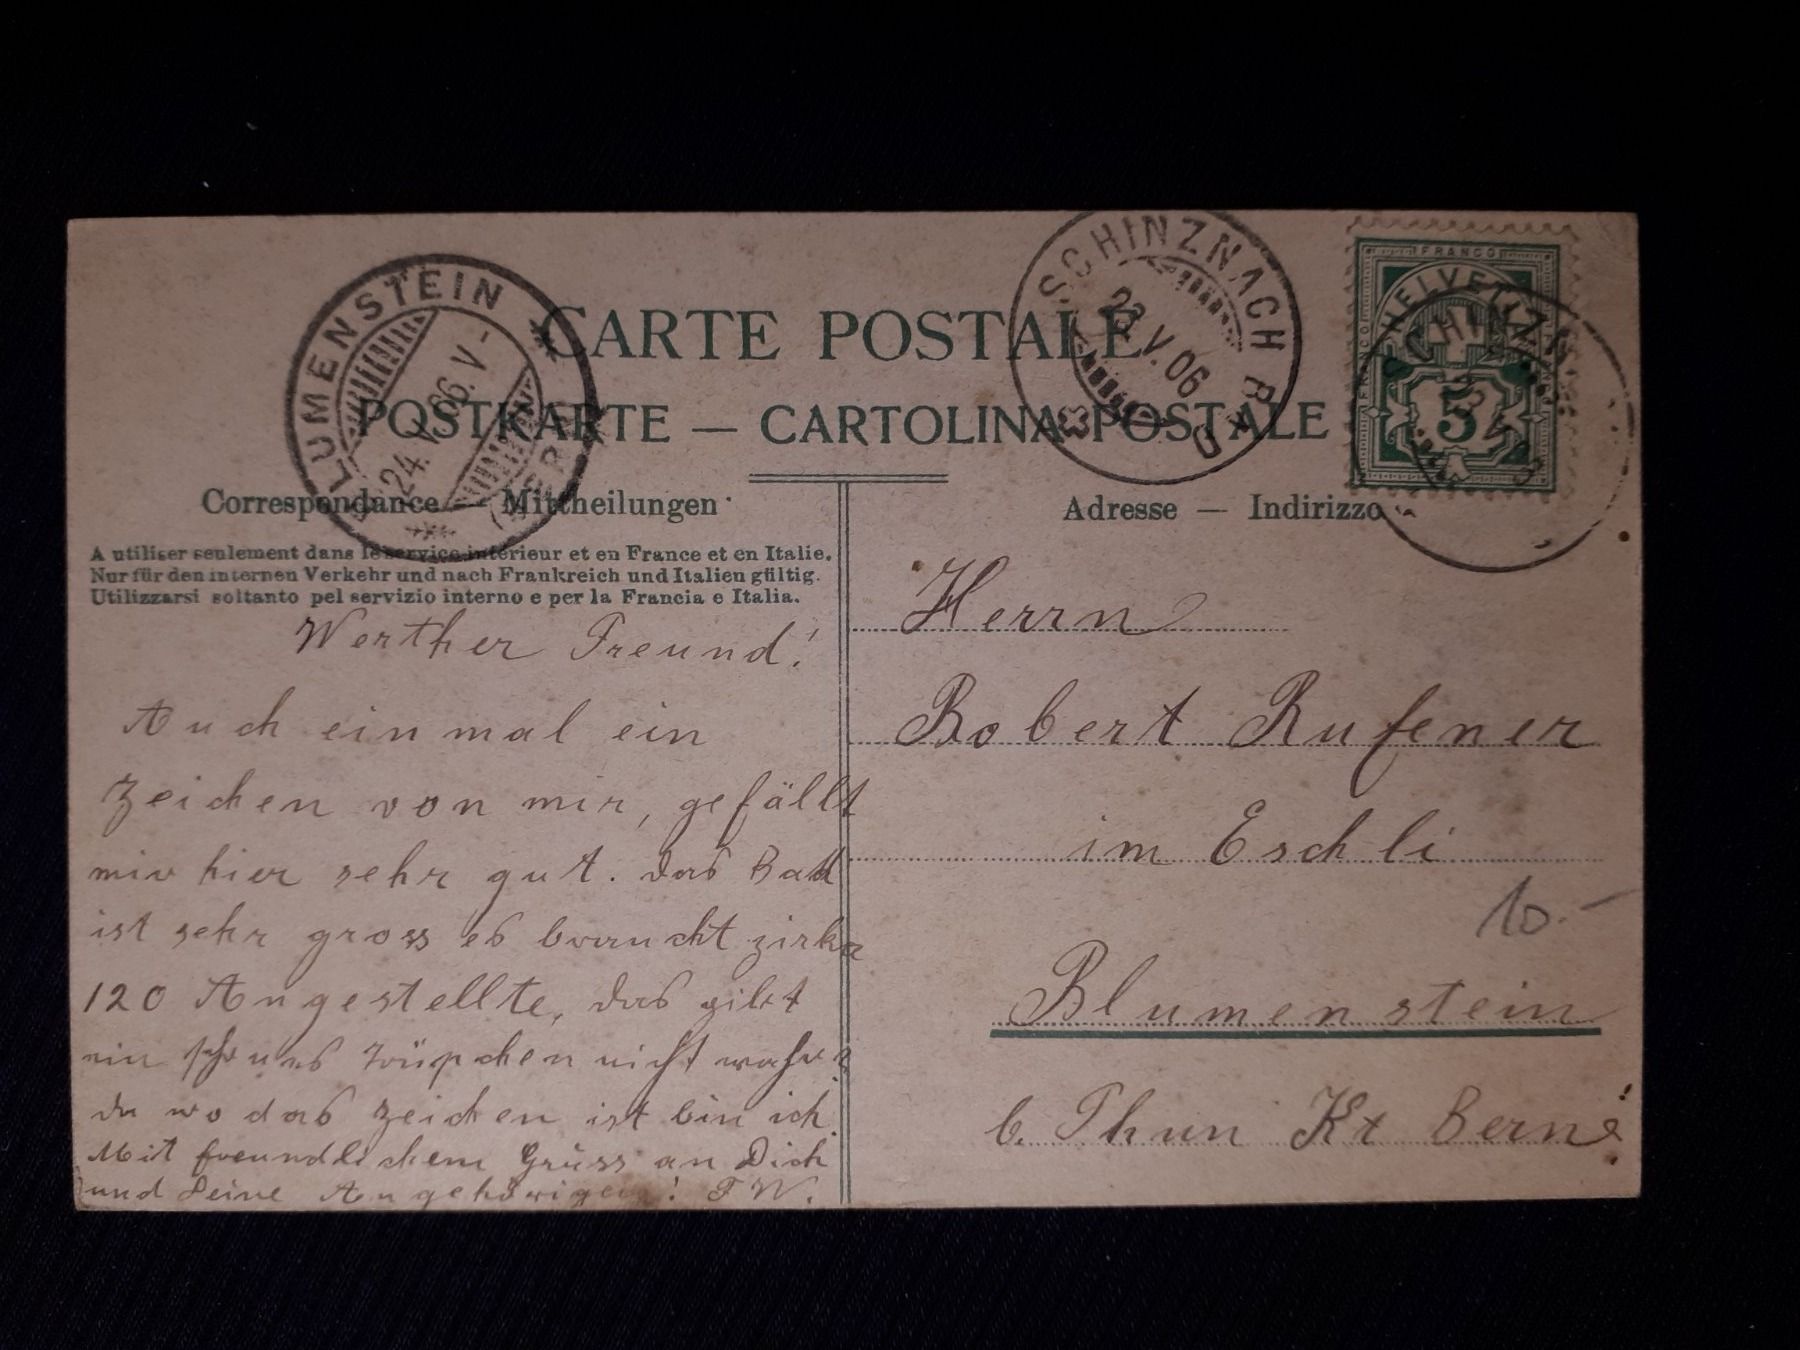 LUMENSTEIN
24. V. 06. V -
(BERN)
SCHINZNACH BAD
23. V. 06
FRANCO
HELVETIA
5
SCHINZ
CARTE POSTALE
POSTKARTE — CARTOLINA POSTALE
Correspondance — Mittheilungen
A utiliser seulement dans le service intérieur et en France et en Italie.
Nur für den internen Verkehr und nach Frankreich und Italien gültig.
Utilizzarsi soltanto pel servizio interno e per la Francia e Italia.
Werther Freund!
Auch einmal ein
Zeichen von mir, gefällt
mir hier sehr gut. das Bad
ist sehr gross es braucht zirka
120 Angestellte, das gibt
ein Trüpchen nicht wahr?
du wo das Zeichen ist bin ich.
Mit freundlichem Grüss an Dich
und Deine Angehörigen! F W.
Adresse — Indirizzo
Herrn
Robert Rufener
im Eschli
10.-
Blumenstein
b. Thun Kt Bern